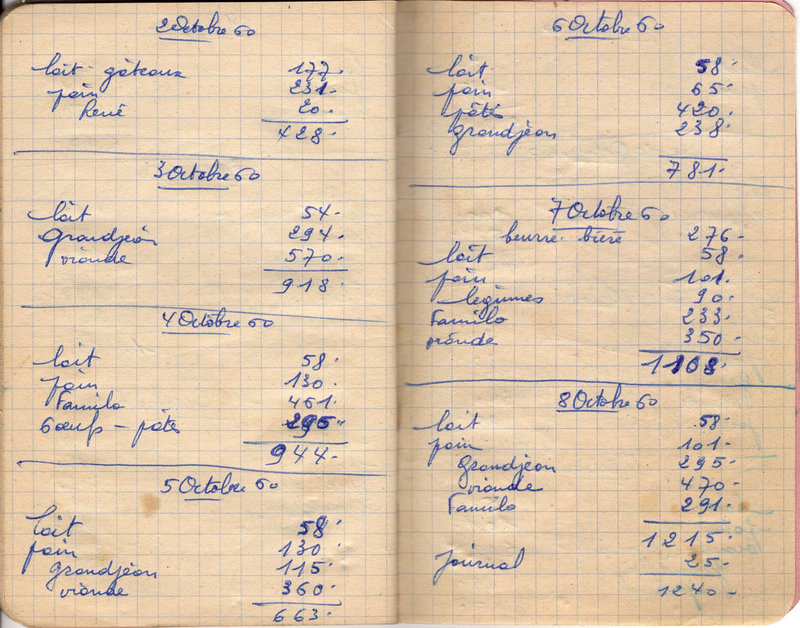 2 Octobre 60
lait - gâteaux 177.
pain 231.
René 20.
428.
3 Octobre 60
lait 54.
Grandjean 294.
viande 570.
918.
4 Octobre 60
lait 58.
pain 130.
Familo 461.
6 œufs - pâtes 295.
944.
5 Octobre 60
lait 58.
pain 130.
grandjean 115.
viande 360.
663.
6 Octobre 60
lait 58.
pain 65.
pâtes 420.
grandjean 238.
781.
7 Octobre 60
beurre. bière 276.
lait 58.
pain 101.
légumes 90.
Familo 233.
viande 350.
1108.
8 Octobre 60
lait 58.
pain 101.
grandjean 295.
viande 470.
Familo 291.
1215.
journal 25.
1240.